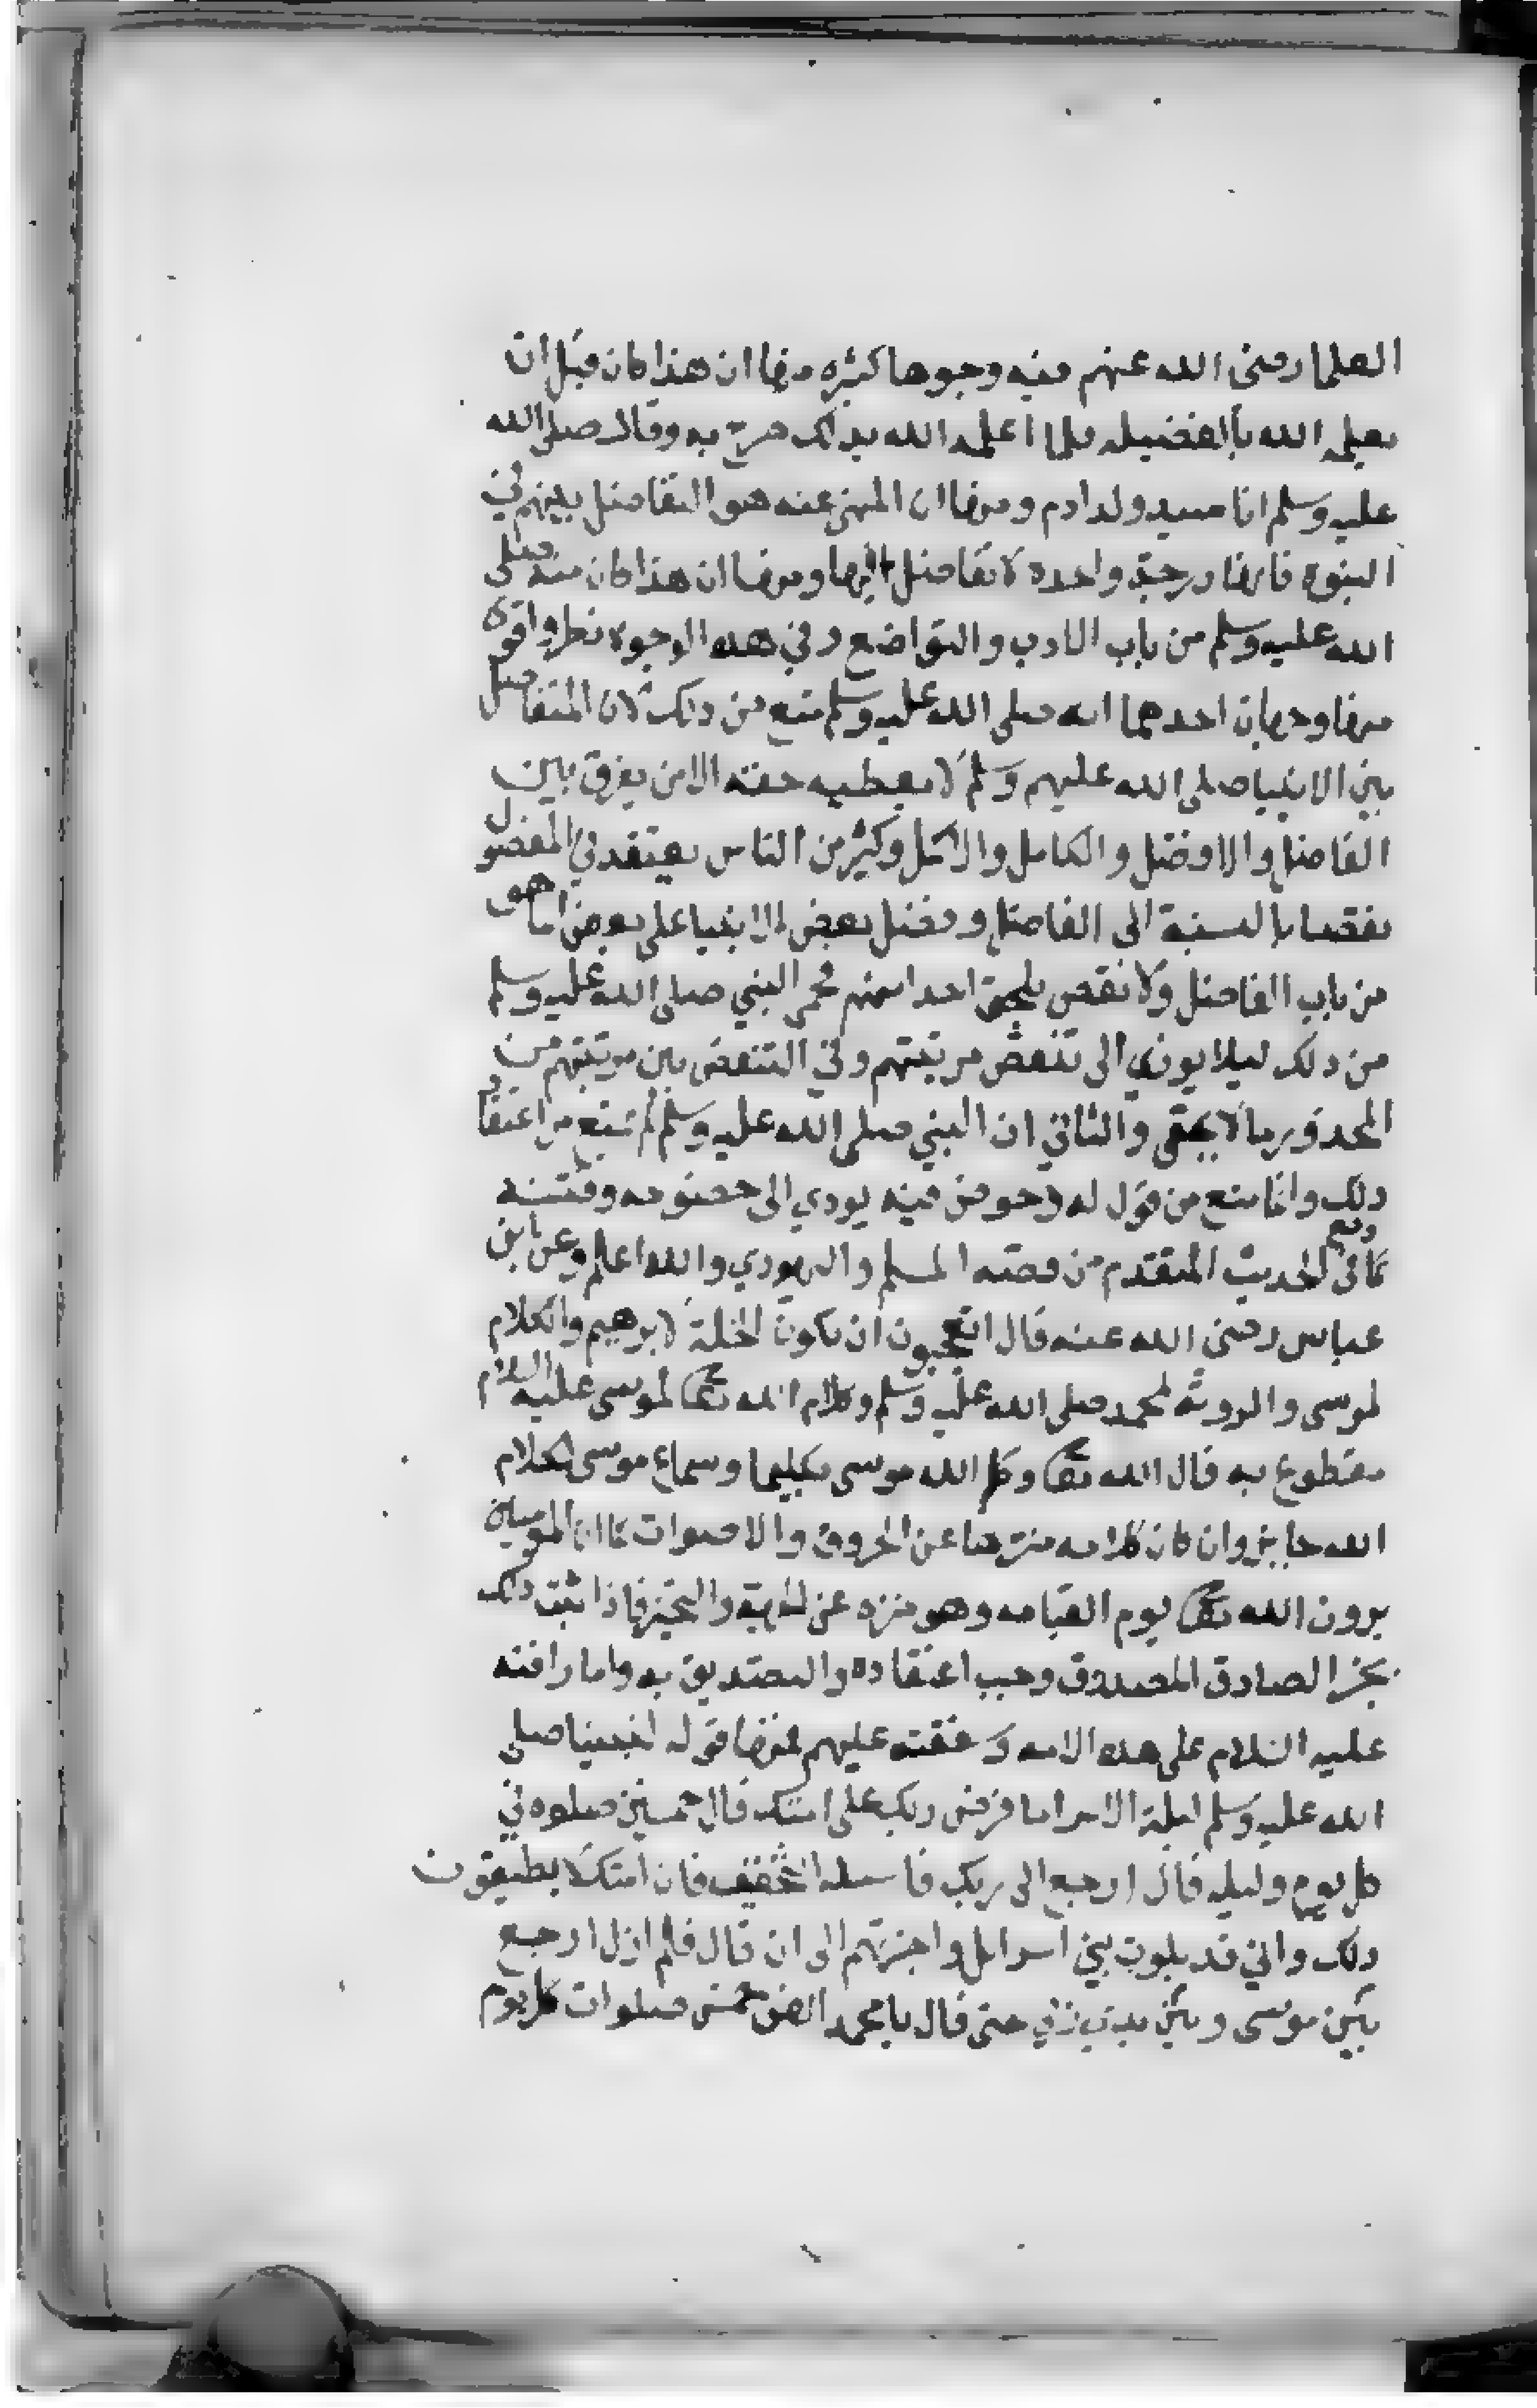 العلما رضى الله عنهم فيه وجوها كثيره منها ان هذا كان قبل ان
يعلمه الله بالفضيله فلما اعلمه الله بذلك صرح به وقال صلى الله
عليه وسلم انا سيد ولد ادم ومنها ان المنهى عنه هو التفاضل بينهم في
النبوه فانها درجة واحده لا تفاضل فيها ومنها ان هذا كان منه صلى
الله عليه وسلم من باب الادب والتواضع وفي هذه الوجوه نظر واقوى
منها وجهان احدهما انه صلى الله عليه وسلم منع من ذلك لان التفاضل
بين الانبيا صلى الله عليهم وسلم لا يعطيه حقه الا من يفرق بين
الفاضل والافضل والكامل والاكمل وكثير من الناس يعتقد في المفضول
نقصا بالنسبة الى الفاضل وفضل بعض الانبيا على بعض انما هو
من باب الفاضل ولا نقص يلحق احدا منهم فحمى النبي صلى الله عليه وسلم
من ذلك ليلا يودي الى تنقص مرتبتهم وفي التنقص بين مرتبتهم من
المحذور ما لا يخفى والثاني ان النبي صلى الله عليه وسلم لم يمنع من اعتقاد
ذلك وانما منع من قول له وخوض فيه يودي الى خصومه وفتنه
كما وقع في الحديث المتقدم من قصة المسلم واليهودي والله اعلم وعن ابن
عباس رضى الله عنه قال اتعجبون ان تكون الخلة لابرهيم والكلام
لموسى والروية لمحمد صلى الله عليه وسلم وكلام الله تعالى لموسى عليه السلام
مقطوع به قال الله تعالى وكلم الله موسى تكليما وسماع موسى لكلام
الله جايز وان كان كلامه منزها عن الحروف والاصوات كما ان المومنين
يرون الله تعالى يوم القيامه وهو منزه عن الجهة والتحيز فاذا ثبت ذلك
بخبر الصادق المصدوق وجب اعتقاده والتصديق به واما رافته
عليه السلام على هذه الامه وشفقته عليهم فمنها قوله لنبينا صلى
الله عليه وسلم ليلة الاسرا ما فرض ربك على امتك قال خمسين صلوه في
كل يوم وليله قال ارجع الى ربك فاسله التخفيف فان امتك لا يطيقون
ذلك واني قد بلوت بني اسرايل واخبرتهم الى ان قال فلم ازل ارجع
بين موسى وبين ربي حتى قال يا محمد انهن خمس صلوات كل يوم